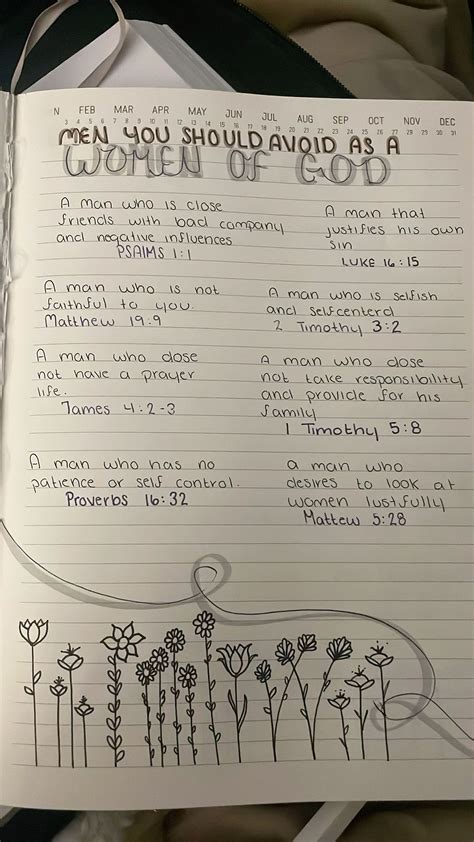 N FEB MAR APR MAY JUN JUL AUG SEP OCT NOV DEC
3 4 5 6 7 8 9 10 11 12 13 14 15 16 17 18 19 20 21 22 23 24 25 26 27 28 29 30 31
MEN YOU SHOULD AVOID AS A
WOMEN OF GOD
A man who is close
friends with bad company
and negative influences
PSAlMS 1:1
A man that
justifies his own
sin
LUKE 16:15
A man who is not
faithful to you.
Matthew 19:9
A man who is selfish
and selfcenterd
2 Timothy 3:2
A man who dose
not have a prayer
life.
James 4:2-3
A man who dose
not take responsibility
and provide for his
family
1 Timothy 5:8
A man who has no
patience or self control.
Proverbs 16:32
a man who
desires to look at
women lustfully
Mattew 5:28